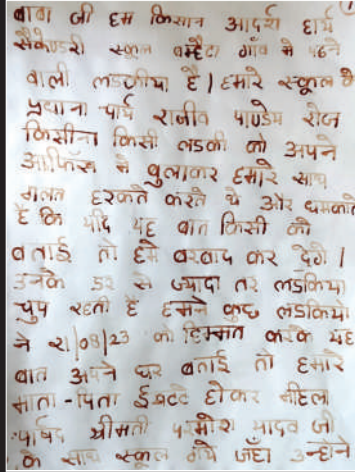 बाबा जी हम किसान आदर्श हायर
सैकेण्डरी स्कूल बम्हेटा गाँव मे पढने
वाली लडकीया है। हमारे स्कूल के
प्रधाना चार्य राजीव पाण्डेय रोज
किसीना किसी लडकी को अपने
आफिस मे बुलाकर हमारे साथ
गलत हरकते करते थे और धमकाते
है कि यदि यह बात किसी को
बताई तो हमे बरबाद कर देगे।
उनके डर से ज्यादा तर लडकिया
चुप रहती है हमने कुछ लडकियो
ने 21/08/23 को हिम्मत करके यह
बात अपने घर बताई तो हमारे
माता-पिता ईकटटे होकर
पार्षद श्रीमती यादव जी
के साथ स्कूल गये जहाँ उन्होने